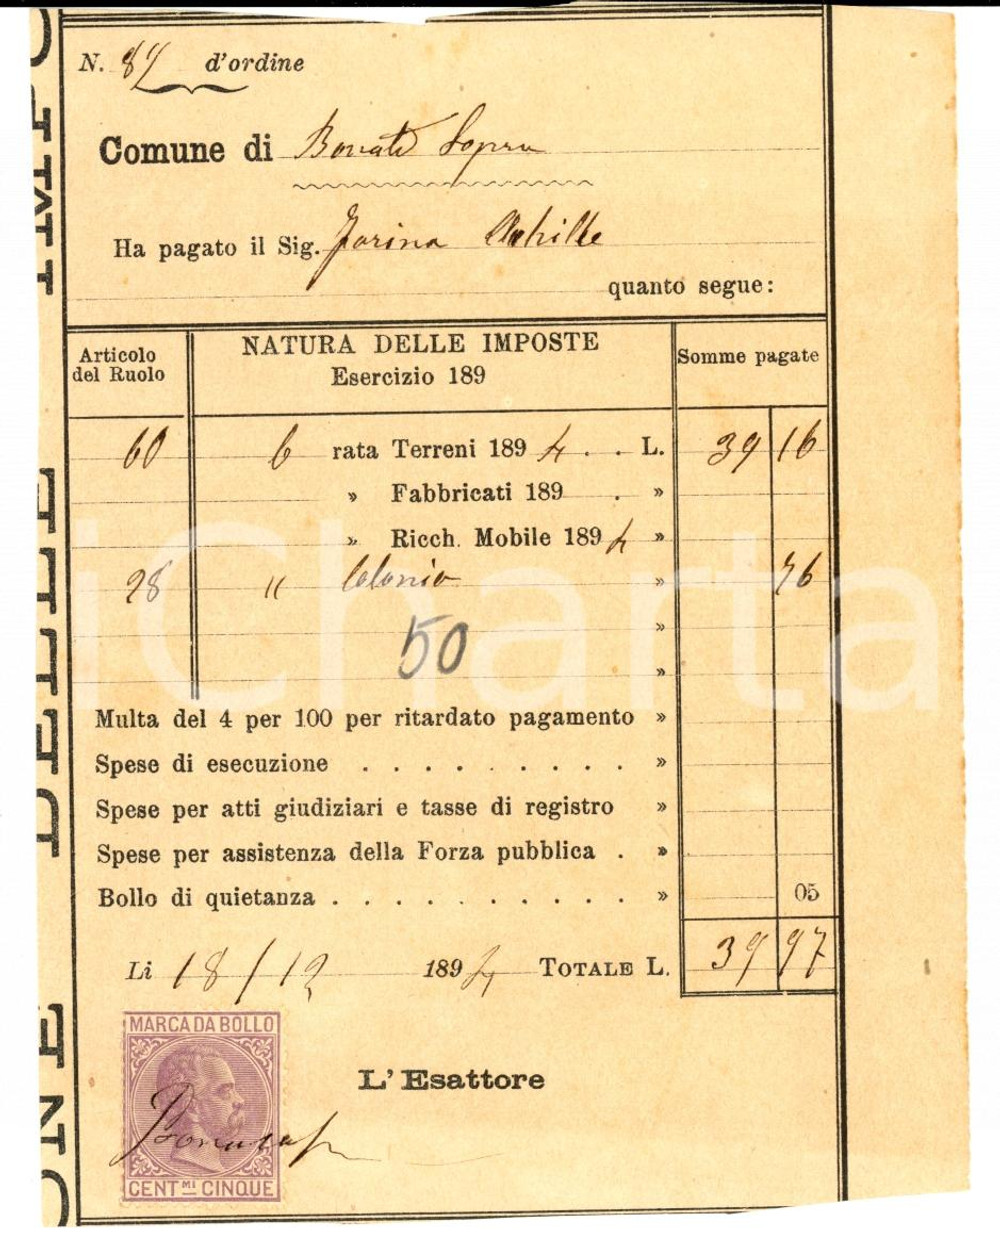 N. 87 d'ordine
Comune di Bonate Sopra
Ha pagato il Sig. Farina Achille
quanto segue:
Articolo del Ruolo
NATURA DELLE IMPOSTE
Esercizio 189
Somme pagate
60 6 rata Terreni 1894 . . L. 39 16
» Fabbricati 189 . »
» Ricch. Mobile 1894 »
28 " Colonia » 76
50 »
»
Multa del 4 per 100 per ritardato pagamento »
Spese di esecuzione . . . . . . . . . »
Spese per atti giudiziari e tasse di registro »
Spese per assistenza della Forza pubblica . »
Bollo di quietanza . . . . . . . . . . » 05
Li 18/12 1894 TOTALE L. 39 97
MARCA DA BOLLO
L'Esattore
CENT.MI CINQUE
DELLE
iCharta